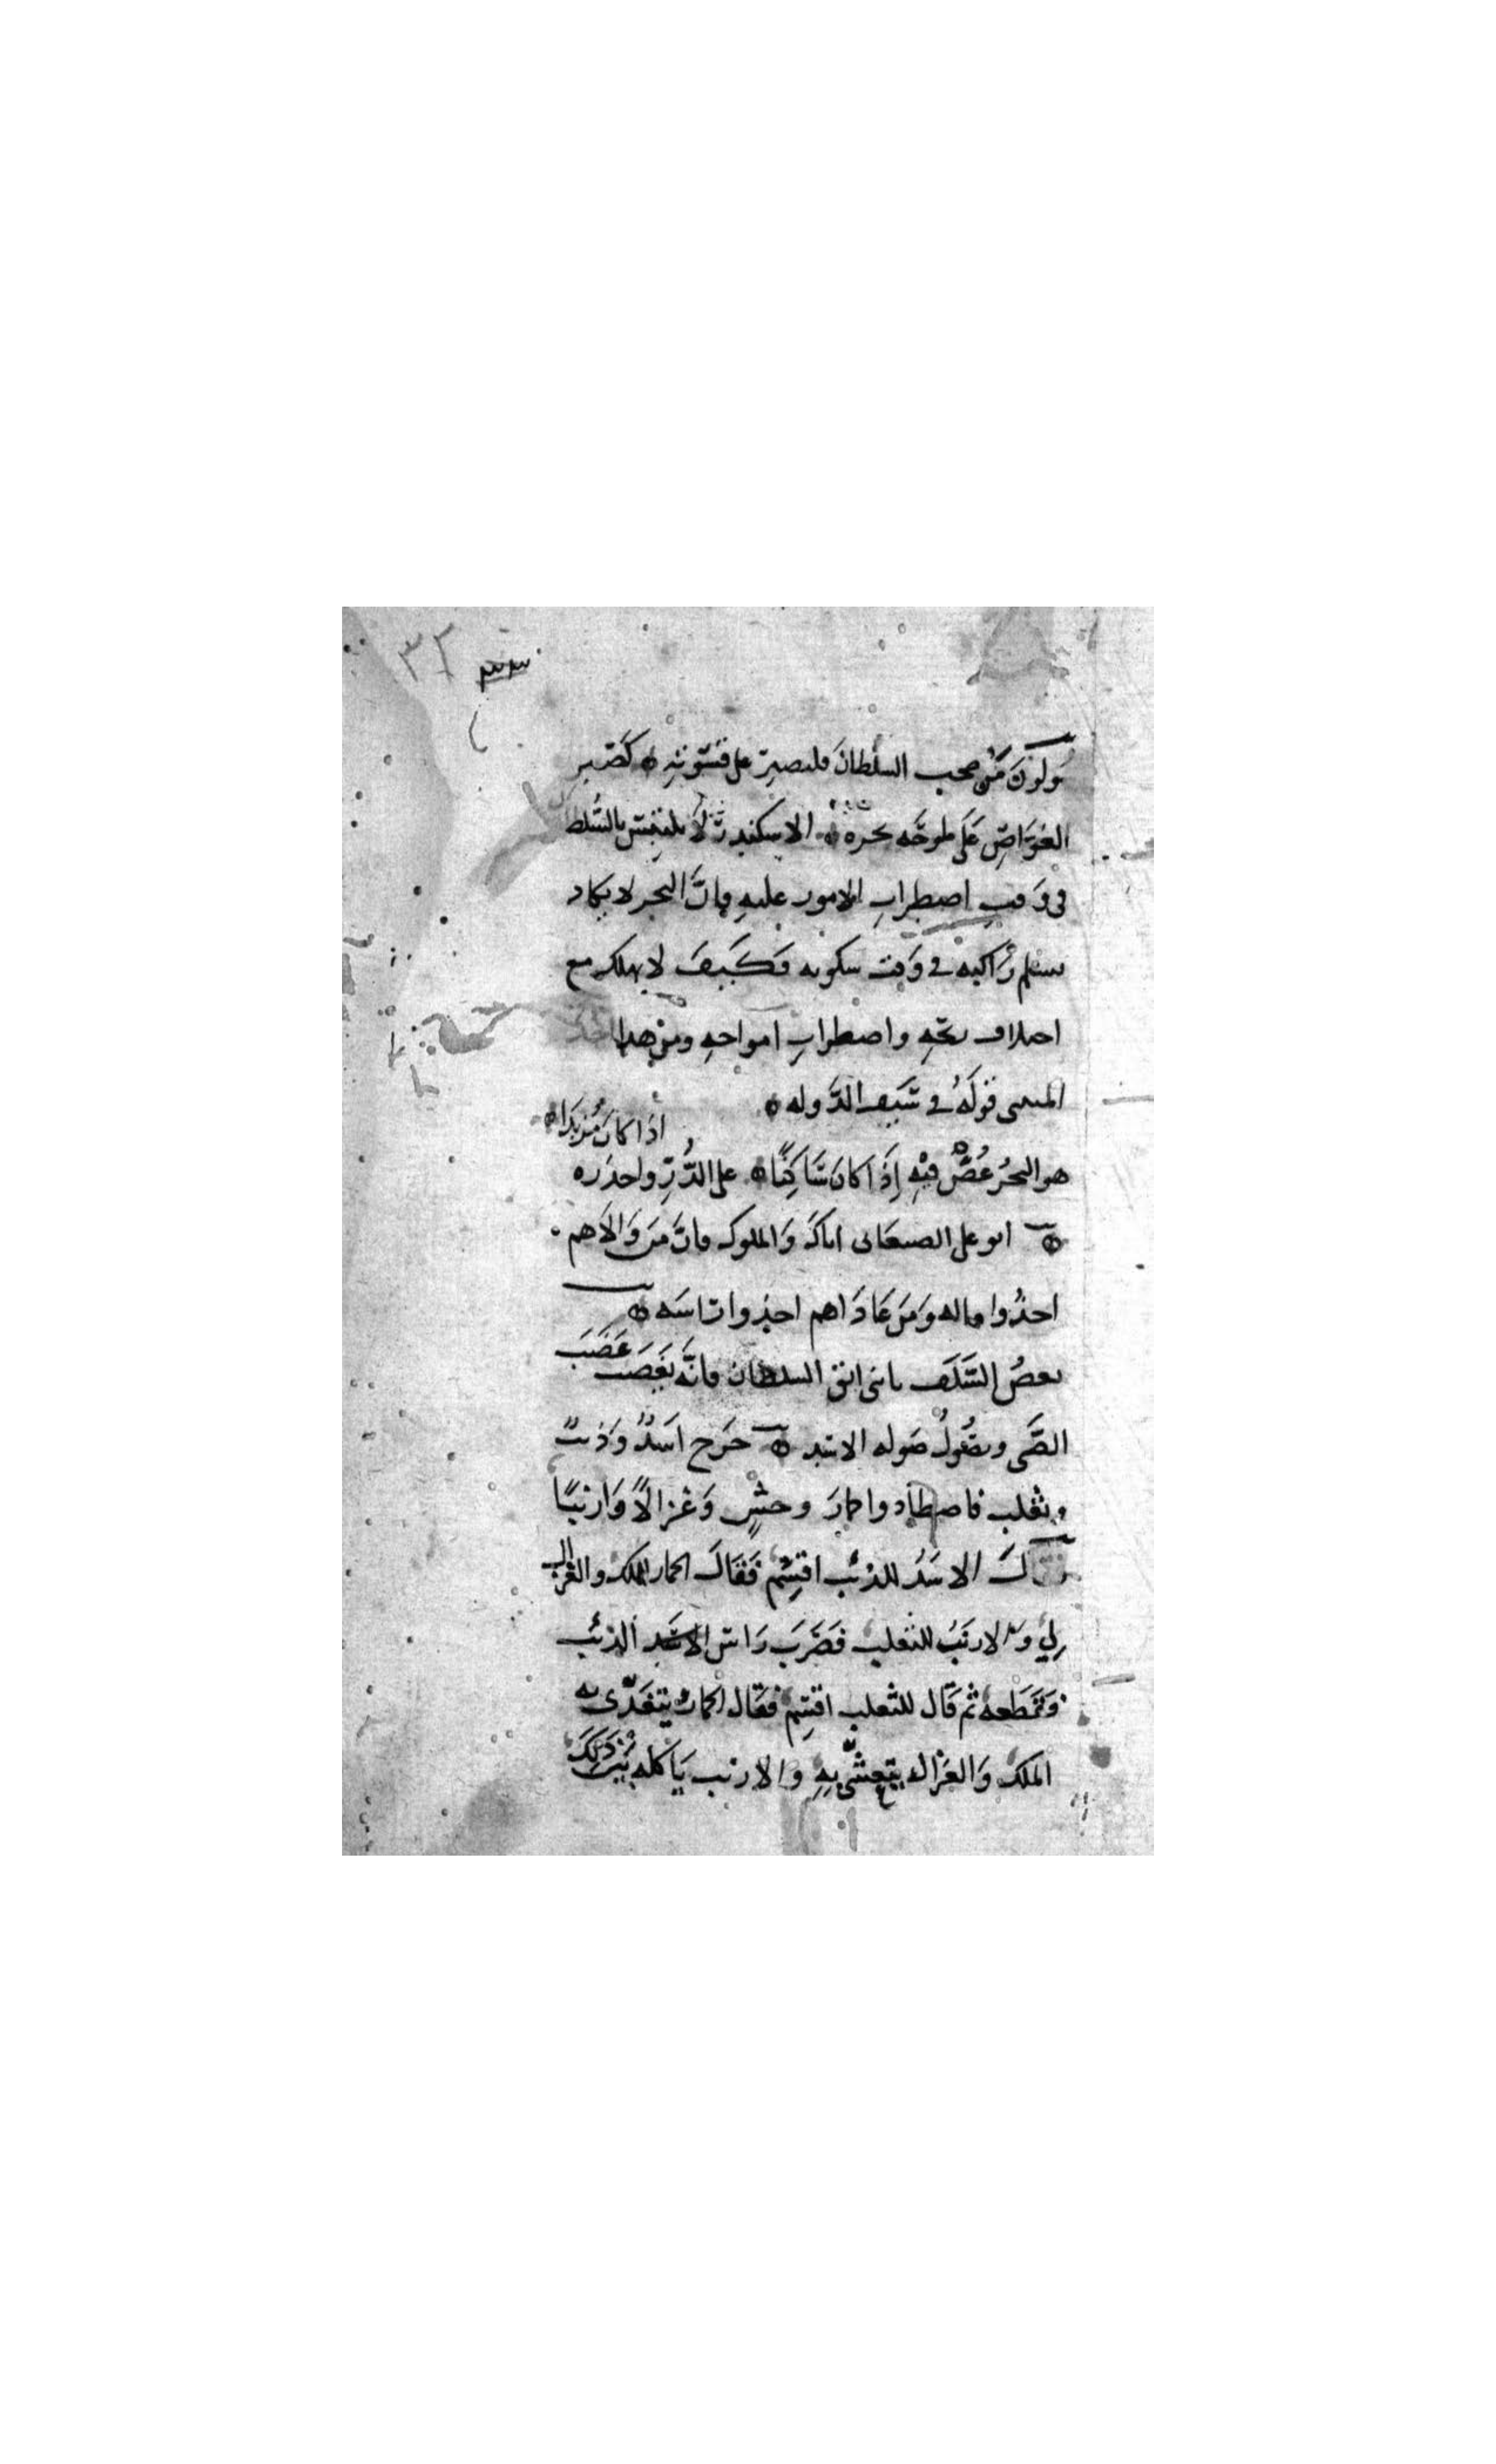 ٣٢ ٣٣
يقولون من صحب السلطان فليصبر على قسوته كصبر
الغواص على ملوحة بحره الاسكندر لا يلتبس بالسلطان
في وقت اضطراب الامور عليه فان البحر لا يكاد
يسلم راكبه في وقت سكونه فكيف لا يهلك مع
اختلاف ريحه واضطراب امواجه ومن هذا اخذ
المتنبي قوله في سيف الدوله
اذا كان مزبدا
هو البحرُ غُصْ فيه إذا كان ساكنًا على الدُّرِّ واحذره
ابو علي الصغاني اياك والملوك فان من والاهم
اخذوا ماله ومن عاداهم اخذوا راسه
بعض السلف يا بني اتق السلطان فانه يغضب غضب
الصبي ويصول صوله الاسد خرج اسدٌ وذئبٌ
وثعلب فاصطادوا حمار وحشٍ وغزالًا وارنبًا
فقال الاسد للذئب اقسم فقال الحمار للملك والغزال
لي والارنب للثعلب فضرب راس الذئب
وقطعه ثم قال للثعلب اقسم فقال الحمار يتغدّى به
الملك والغزال يتعشّى به والارنب ياكله بين ذلك